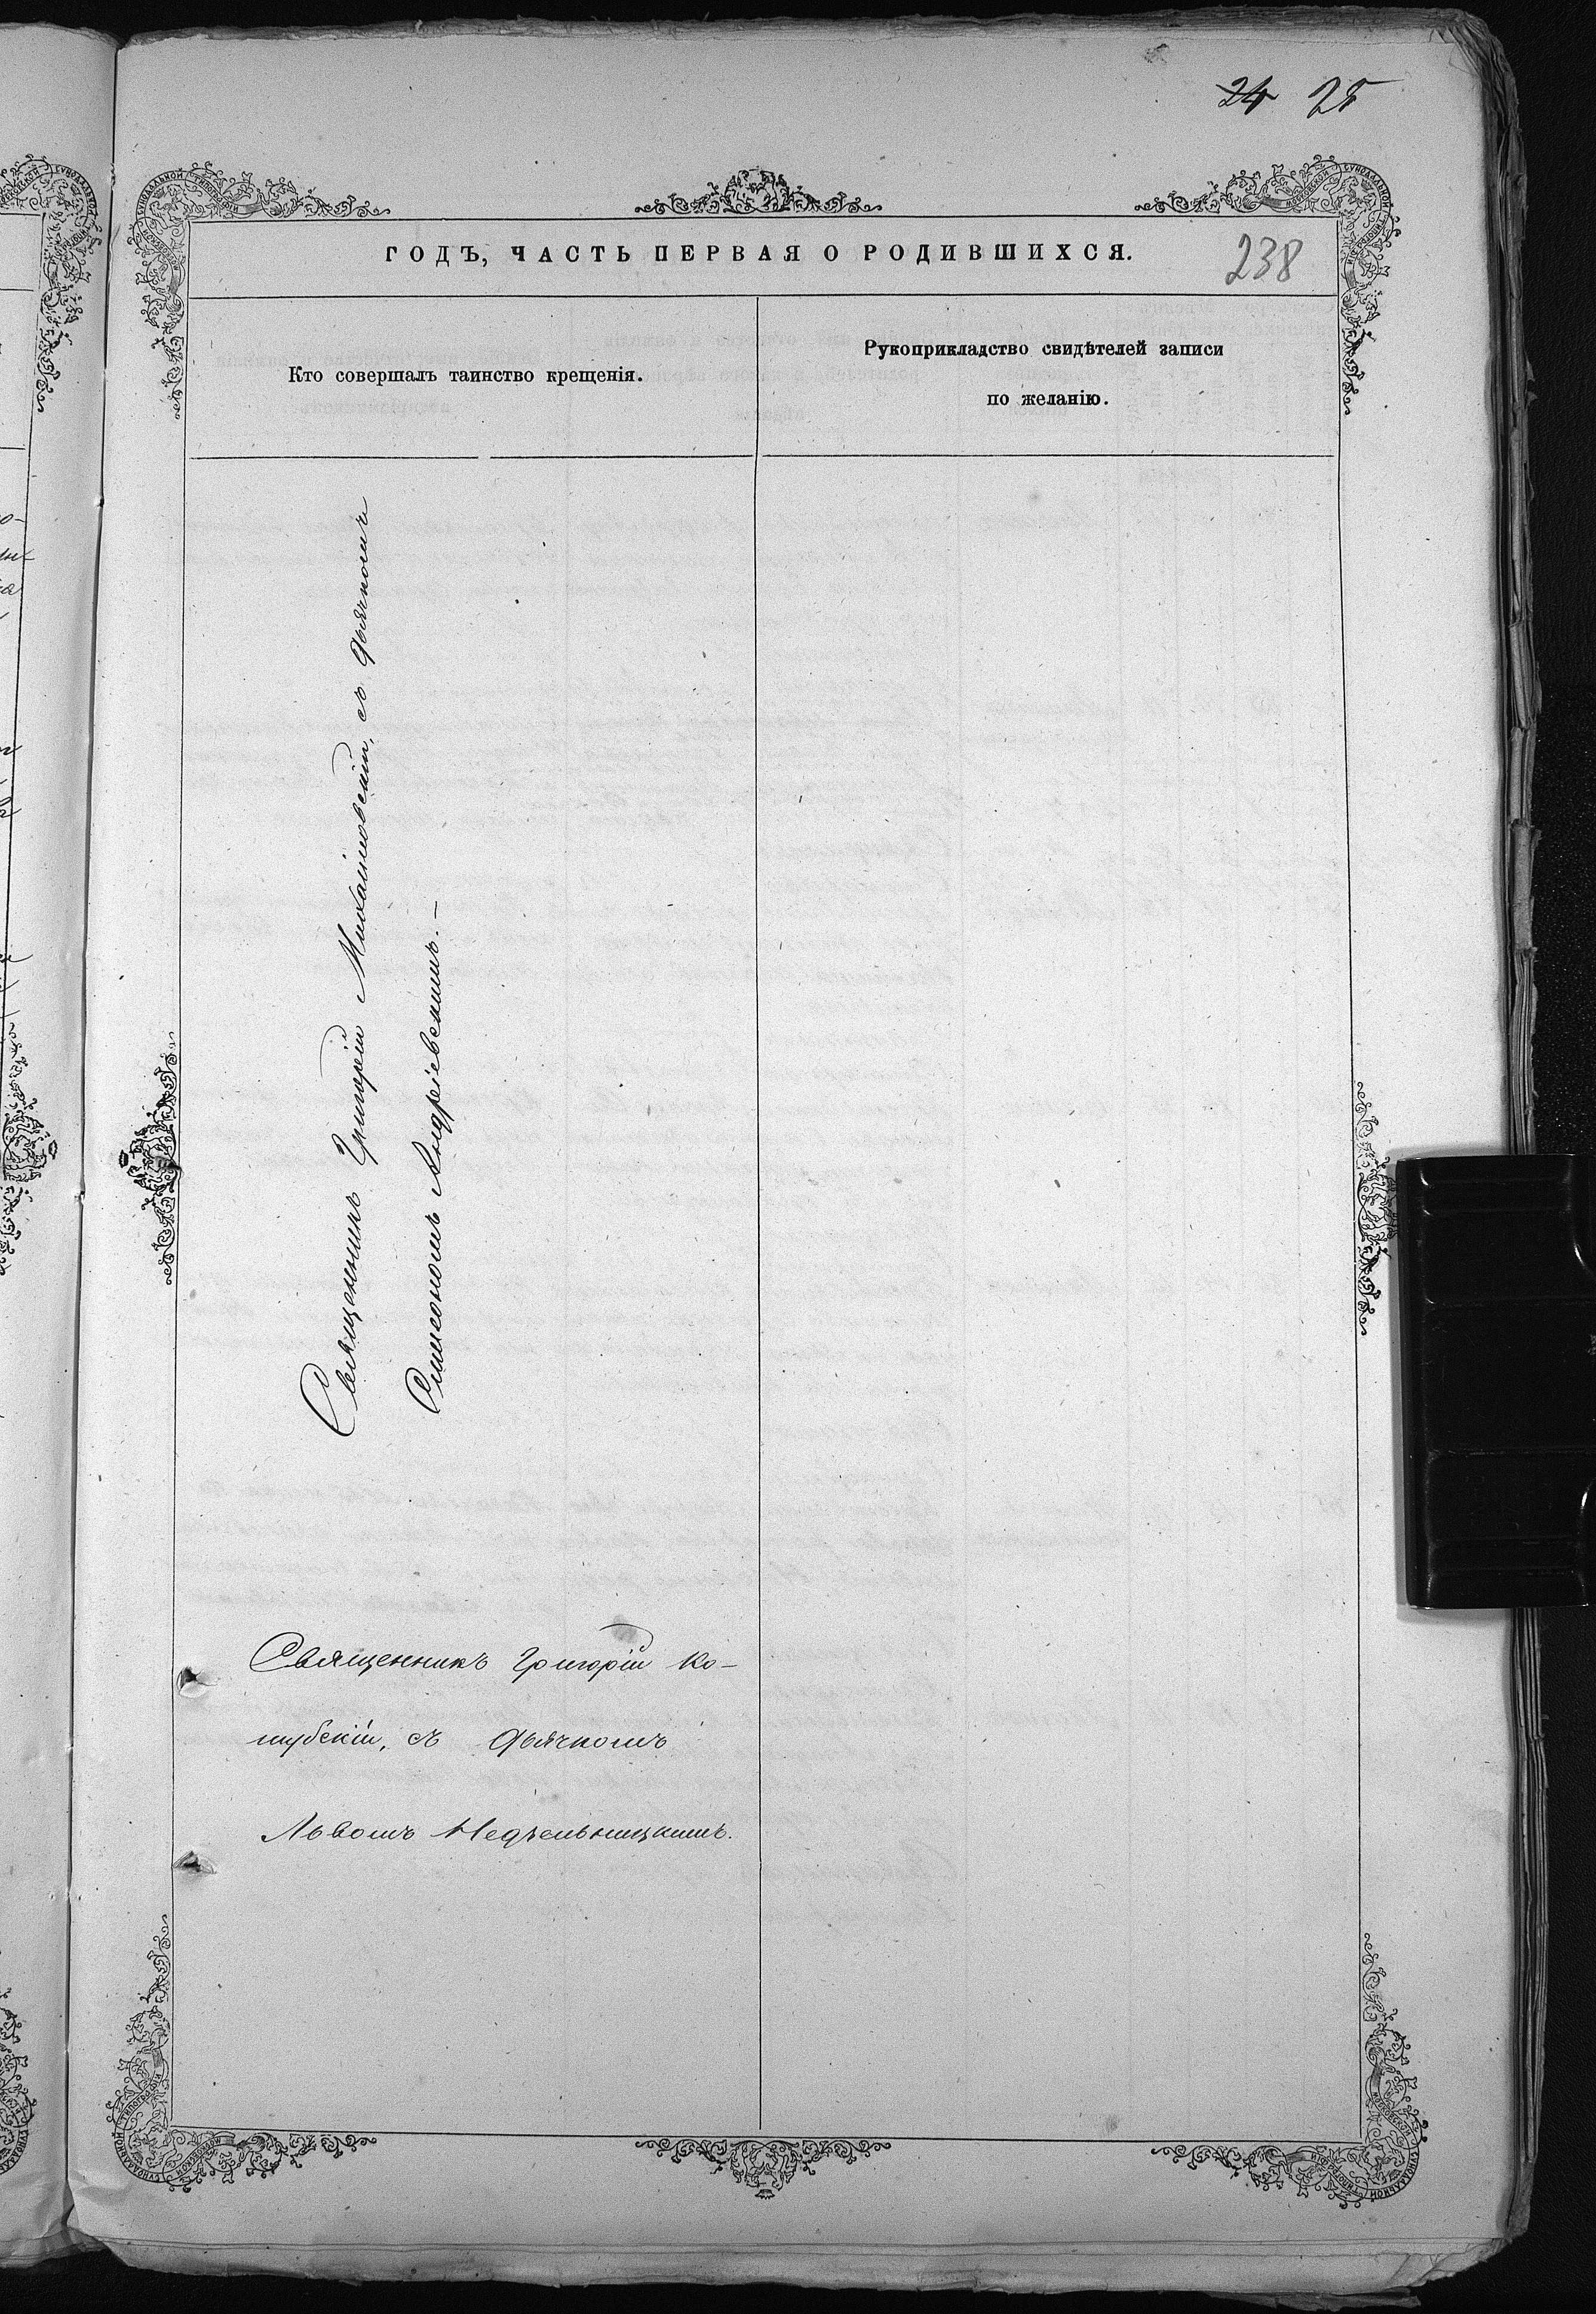 24 25
ГОДЪ, ЧАСТЬ ПЕРВАЯ О РОДИВШИХСЯ.
238
Кто совершалъ таинство крещенія.
Рукоприкладство свидѣтелей записи
по желанію.
Священникъ Григорій Михайловскій, съ дьячкомъ
Симеономъ Андріевскимъ.—
Священникъ Григорій Ко-
шубскій, съ дьячкомъ
Львомъ Недѣльницкимъ.